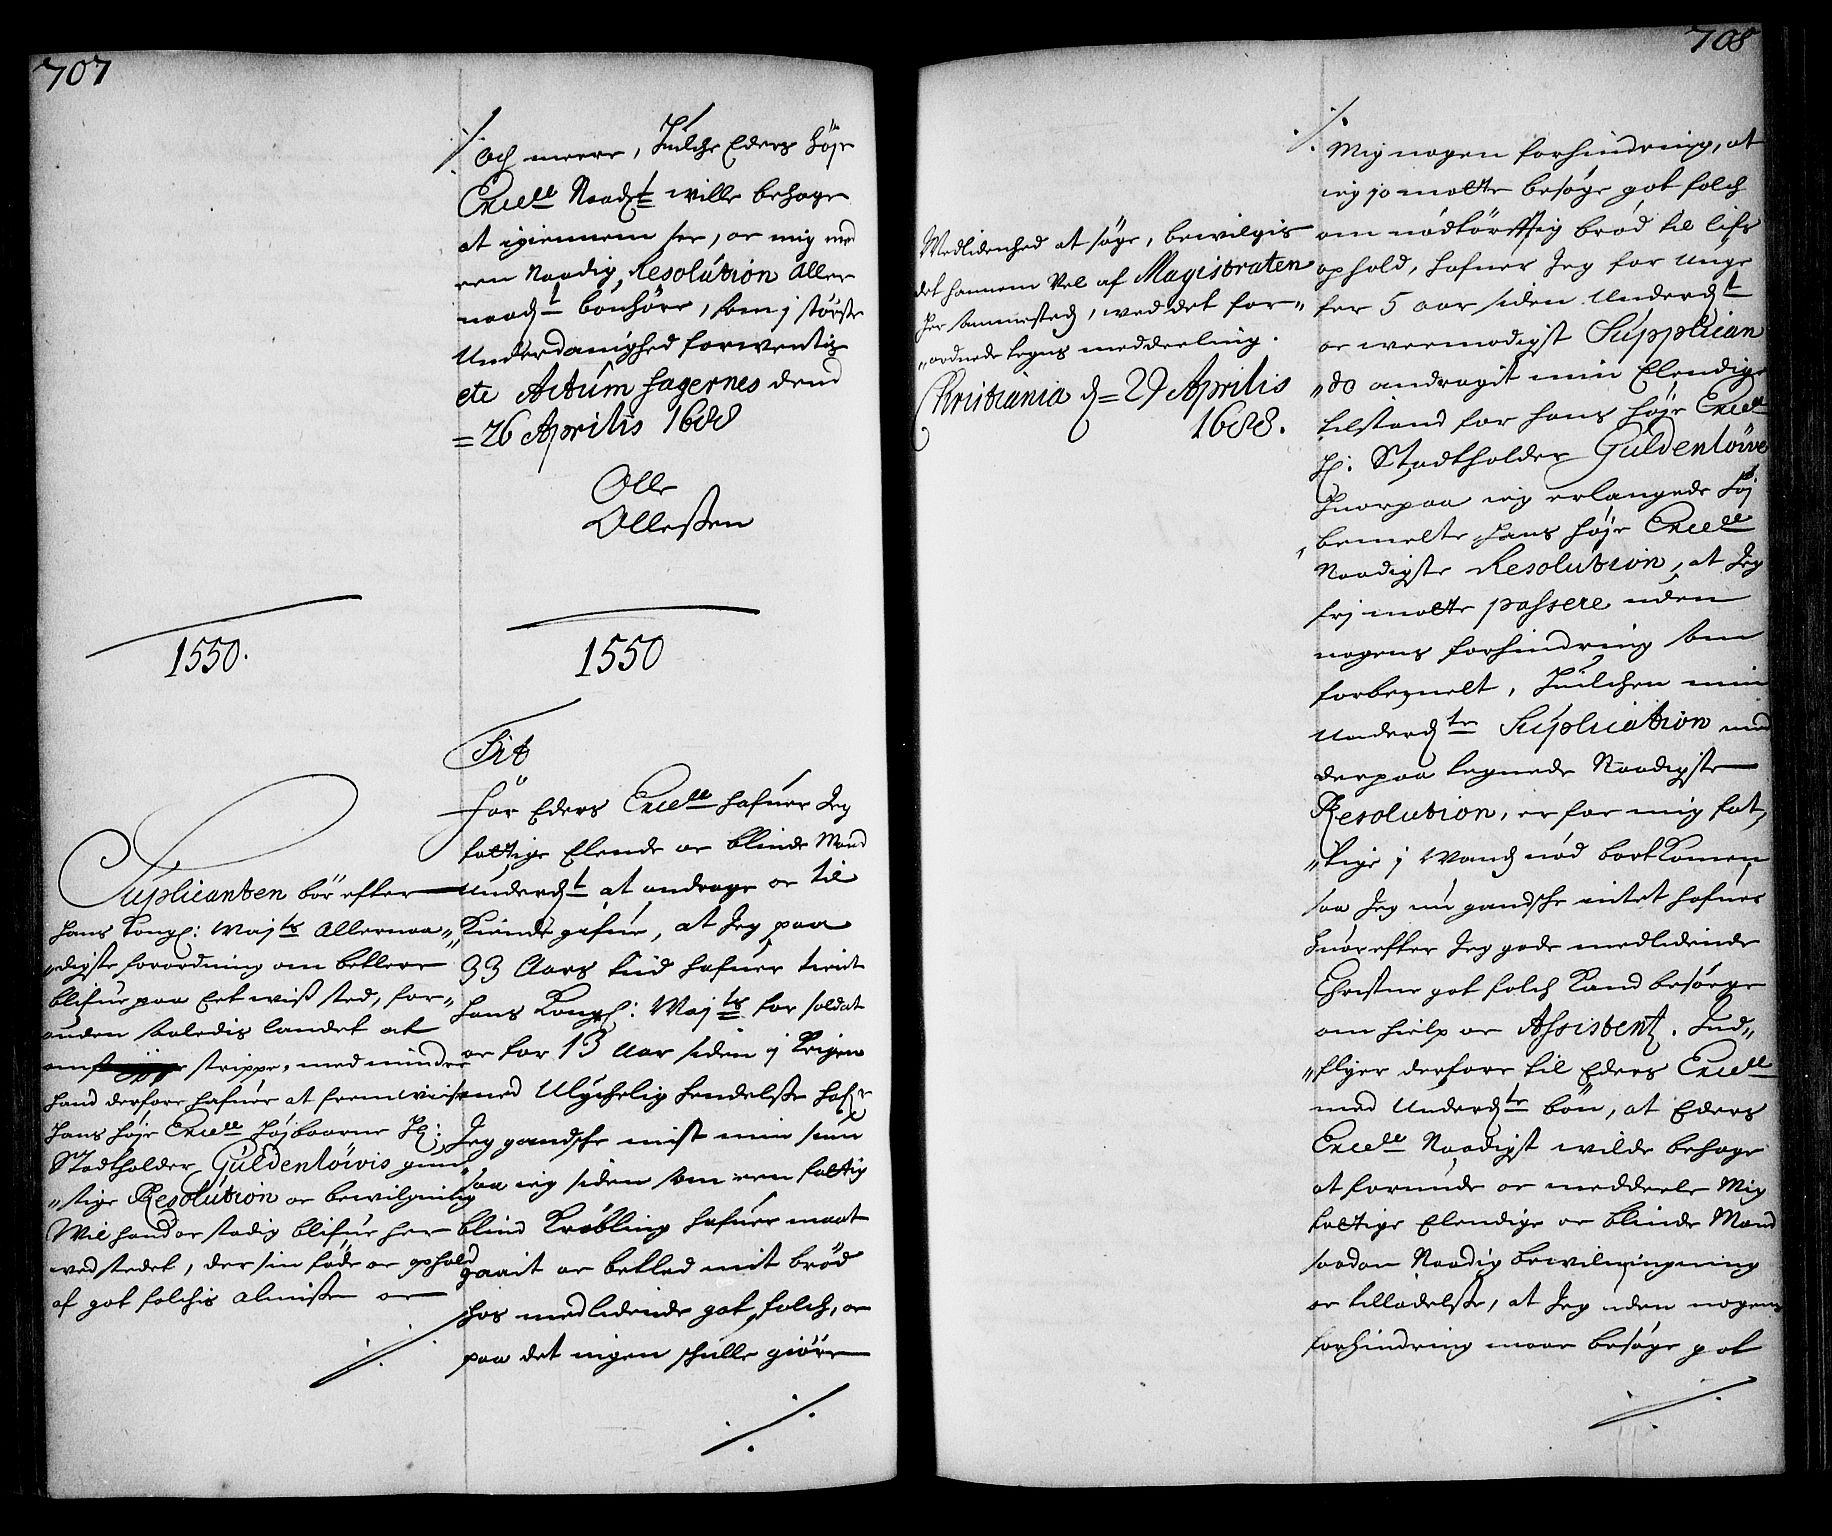 707
och meere, Huilche Eders höje
Excell Naadt wille behage
at igiennem see, oc mig med
een Naadig Resolution Aller
naadt bönhöre, som j störste
Underdanighed forwentis
etc Actum Hagernes dend
26 Aprilis 1688
Olle
Ollessen
1550.
Süplicanten bör efter
Hans Kongl: Majts Allernaa-
digste forordning om betlere
blifue paa Eet wist sted, for-
uden saaledis landet at
omstrippe, med mindre
Hand derfore hafuer at fremwiise
Hans Höje Excell Höjbaarne H:
Stadtholder Güldenlöwis gun-
stige Resolution oc bewilgning
Wil hand oc stadig blifue her
wed stedet, der sin föde oc ophold
af got folchis almisse oc
1550
Sit
For Eders Excell hafuer Jeg
fattige Elende oc blinde Mand
Underdt at andrage oc til
Kiende gifue, at Jeg paa
33 Aars tiid hafuer tient
Hans Kongl: Majts for soldat
oc for 13 Aar siden j Krigen
med Ulychelig hendelsse hafr
Jeg gandsche mist min siun
saa ieg siden som een fattig
blind Krøbling hafuer maat
gaait oc betled mit bröd
hos medlidende got folch, oc
paa det ingen schulle giöre
708
Medlidenhed at söge, bewilgis
det hannem Vel af Magistraten
her sammesteds, wed det for-
ordnede tegns meddeeling.
Christiania d= 29 Aprilis
1688.
Mig nogen forhindring, at
ieg jo maatte besöge got folch
om nödtörfftig bröd til lifs
ophold, hafuer Jeg for unge
fer 5 aar siden Underdt
oc weemodigst Supplican
do andragit min Elendige
tilstand for hans höje Excell
H: Stadtholder Güldenlöwe
Huorpaa ieg erlangede höj
bemelte hans höje Excell
Naadigste Resolution, at Jeg
frj maatte passere uden
nogens forhindring som
forbemelt, Huilchen min
Underdte Süplication med
derpaa tegnede Naadigste
Resolution, er for mig fat-
tige j Wands nöd bort Komen
saa Jeg nu gandsche intet hafuer
huorefter Jeg gode medlidende
Christne got folch Kand besörge
om hielp oc Assistentz. Ind-
flyer derfore til Eders Excell
med Underdte bön, at Eders
Excell Naadigst wilde behage
at forunde oc meddeele Mig
fattige Elendige oc blinde Mand
saadan Naadig bewilningning
oc tilladelsse, at Jeg uden nogens
forhindring maae besöge got